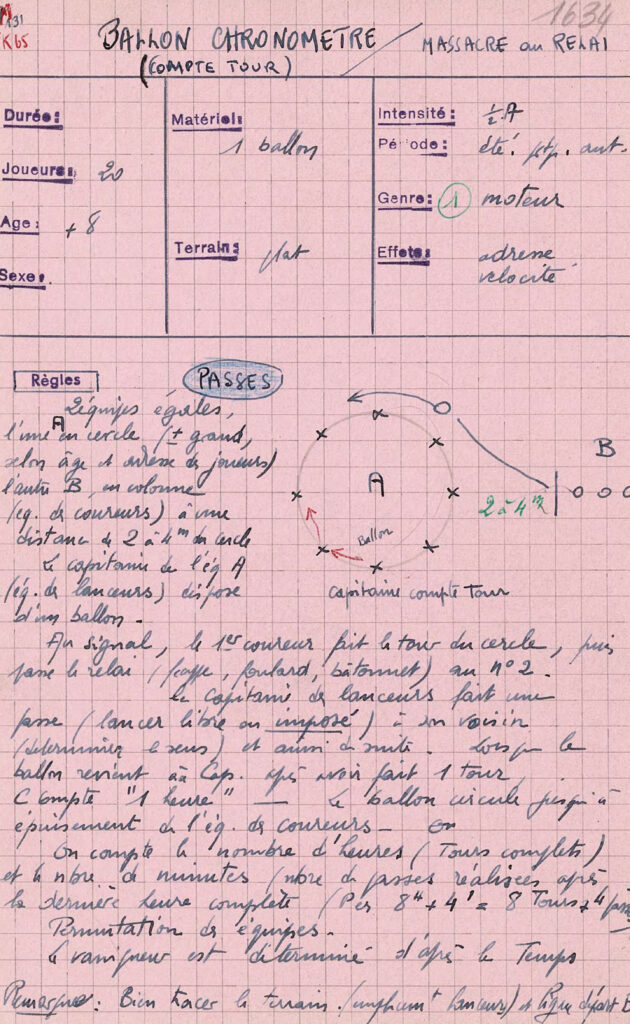 131
K65
1634
BALLON CHRONOMETRE / MASSACRE au RELAI
(COMPTE TOUR)
Durée:
Joueurs: 20
Age: + 8
Sexe:
Matériel:
1 ballon
Terrain: plat
Intensité: ½ A
Période: été. ptp. aut.
Genre: 1 moteur
Effets: adresse
vélocité
Règles
PASSES
2 équipes égales,
l'une A en cercle (± grand,
selon âge et adresse de joueurs)
l'autre B, en colonne
(éq. de coureurs) à une
distance de 2 à 4m du cercle
Le capitaine de l'éq A
(éq. de lanceurs) dispose
d'un ballon.
A
B
2 à 4m
Ballon
Capitaine compte Tour
Au signal, le 1er coureur fait le tour du cercle, puis
passe le relai (, foulard, bâtonnet) au n° 2.
Le Capitaine de lanceurs fait une
passe (lancer libre ou imposé) à son voisin
(déterminer le sens) et ainsi de suite. Lorsque le
ballon revient au Cap. après avoir fait 1 tour,
C compte "1 heure" — Le ballon circule jusqu'à
épuisement de l'éq. de coureurs —
On compte le nombre d'heures (Tours complets)
et le nbre de minutes (nbre de passes réalisées après
la dernière heure complète (Per 8H + 4' = 8 Tours + 4 passes
Permutation des équipes.
Le vainqueur est déterminé d'après le Temps
Remarque: Bien tracer le terrain. ( lanceurs) et ligne départ B